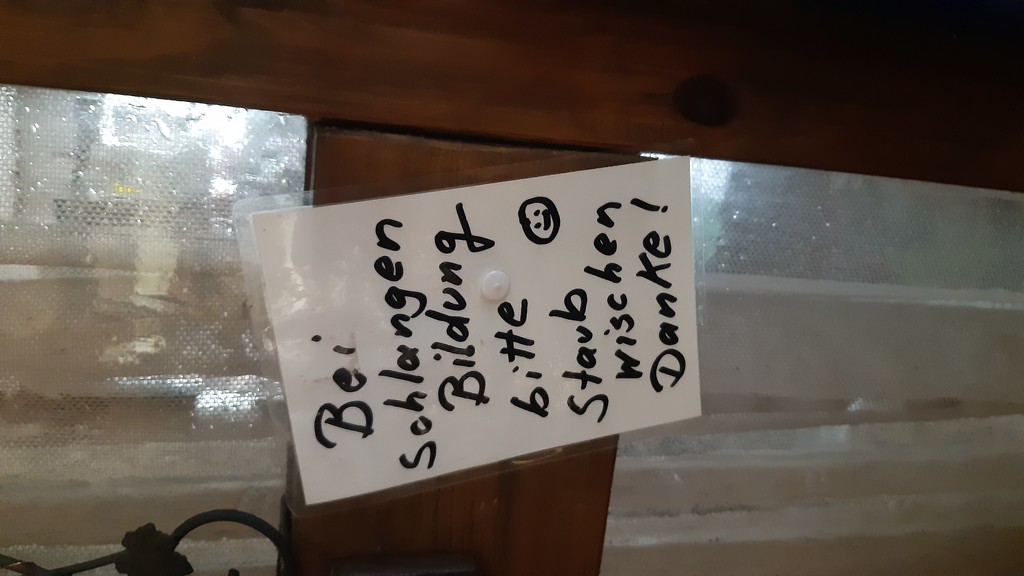 Bei
Schlangen
Bildung
bitte
Staub
wischen
Danke!